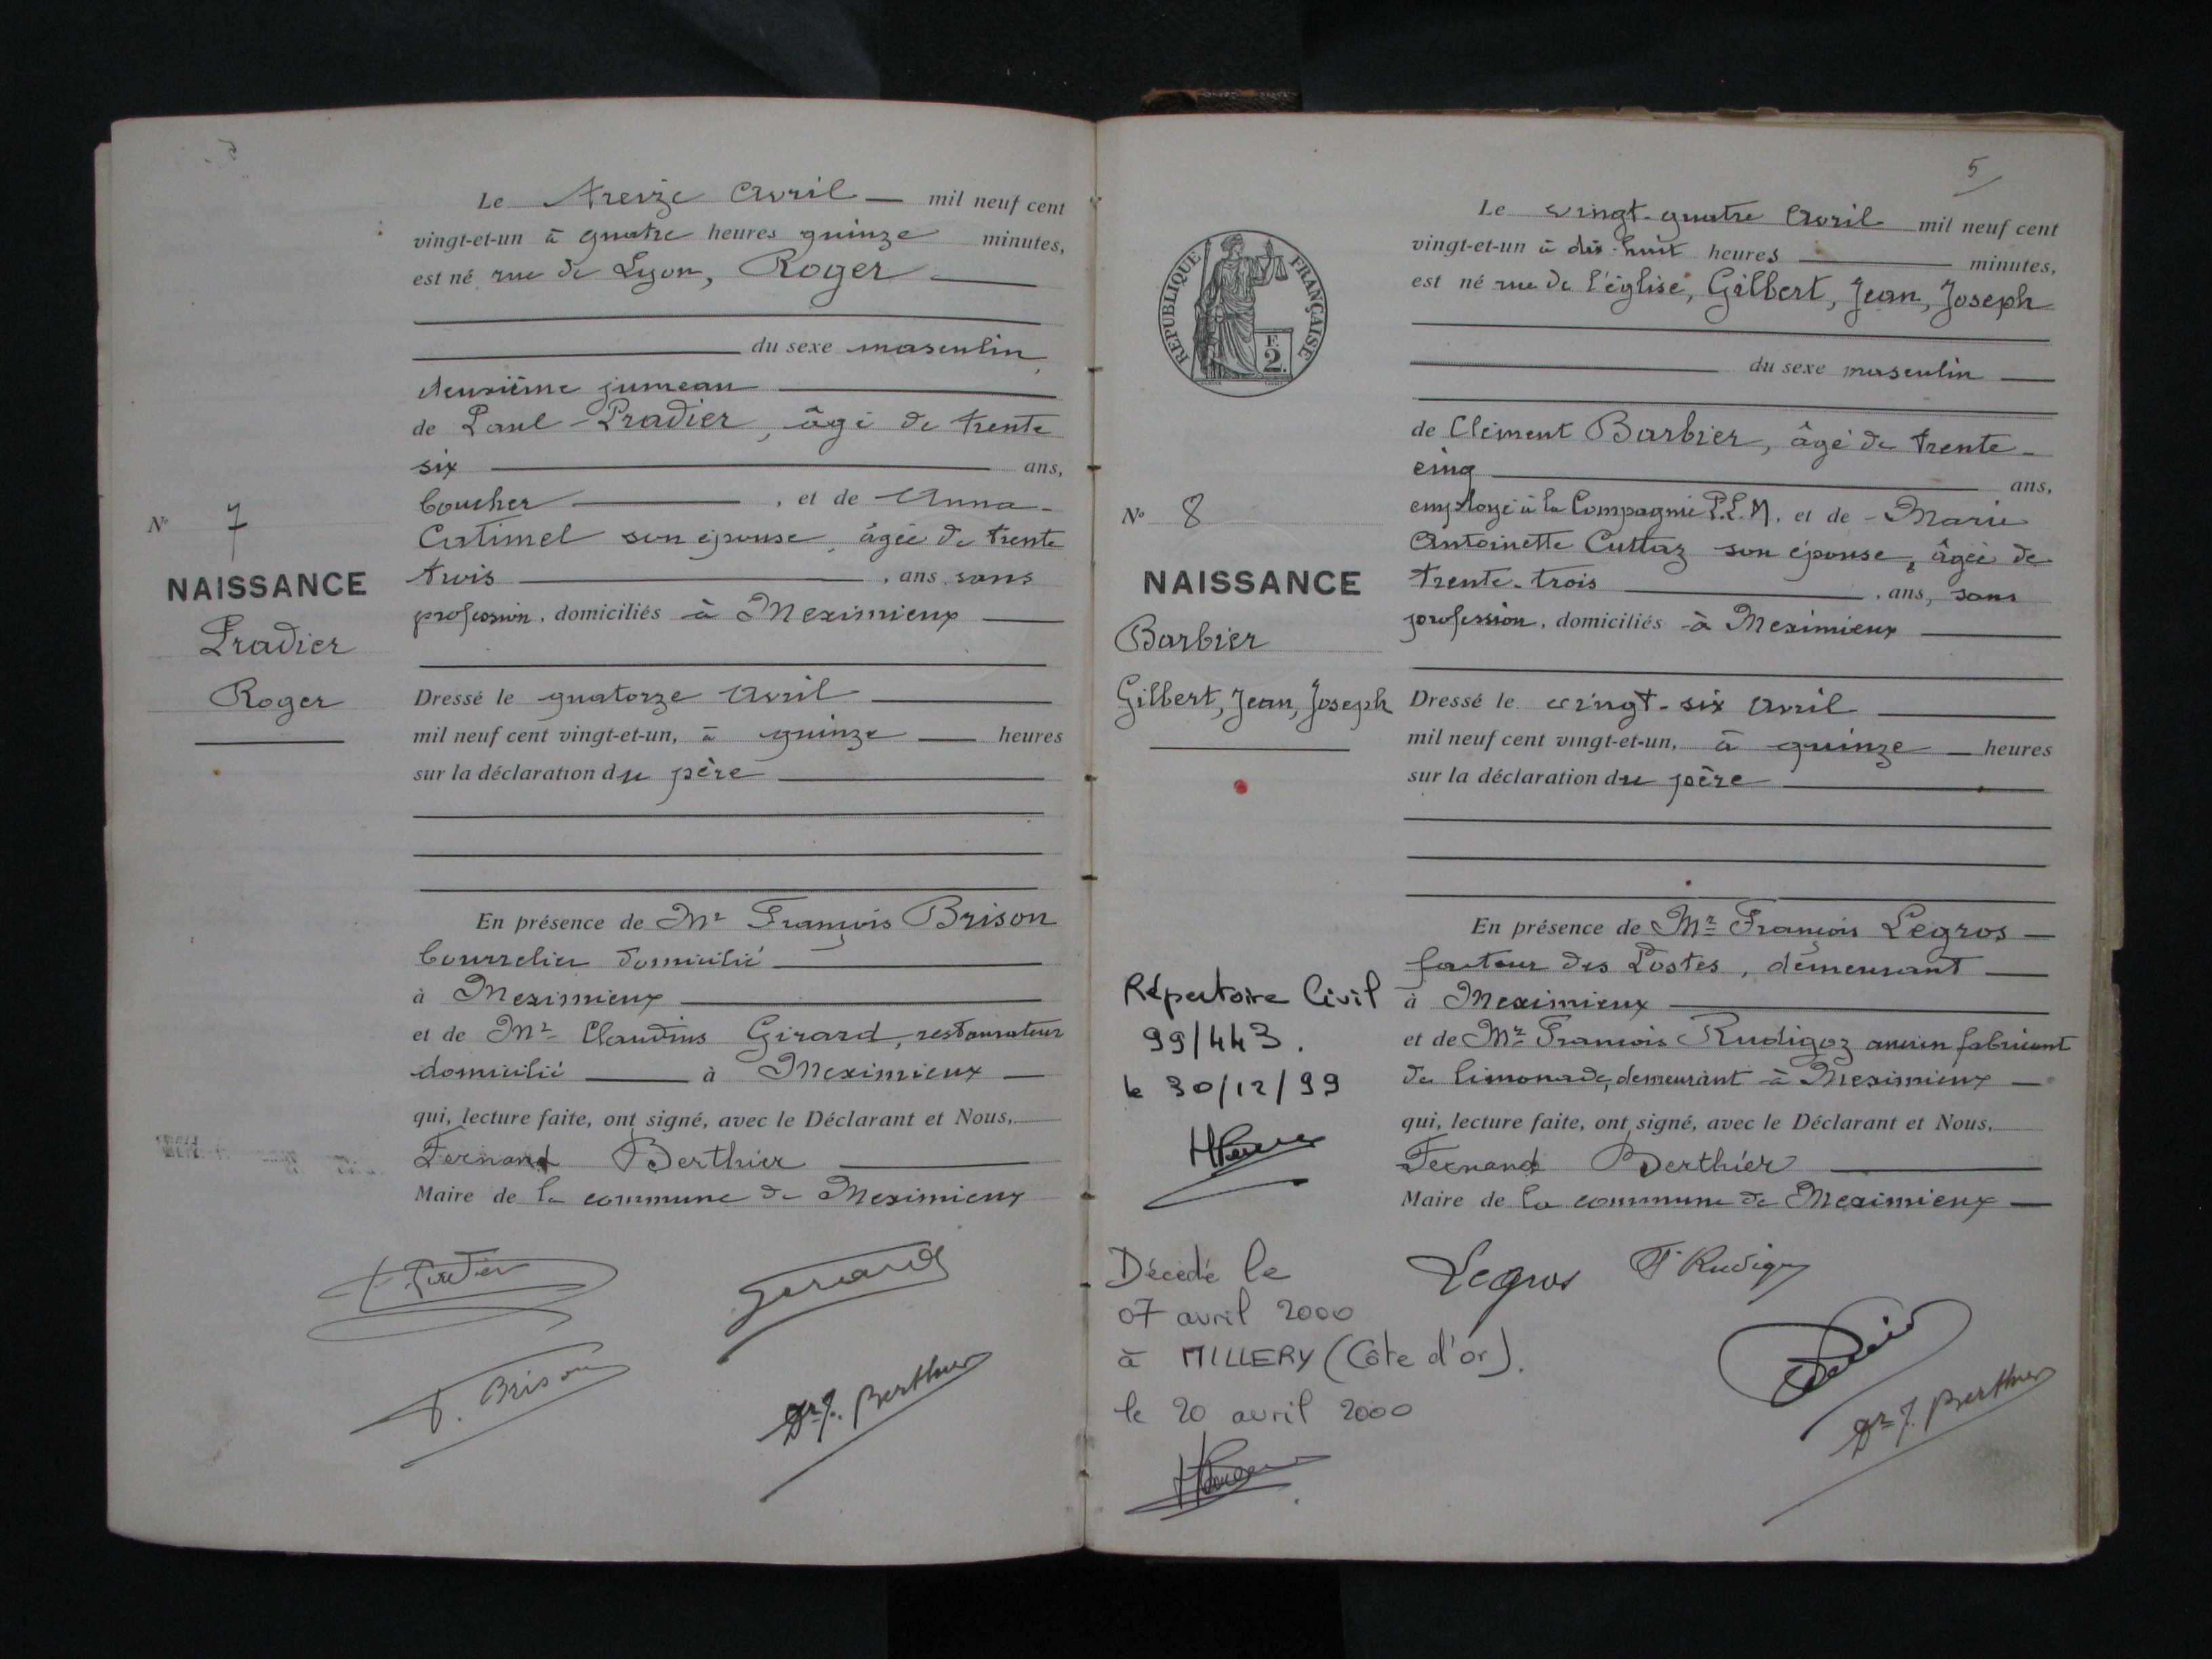 Le treize Avril — mil neuf cent
vingt-et-un à quatre heures quinze minutes,
est né rue de Lyon, Roger
du sexe masculin,
deuxième jumeau
de Paul Pradier, âgé de trente
six ans,
boucher, et de Anna
Catimel son épouse, âgée de trente
trois, ans, sans
profession, domiciliés à Meximieux
N° 7
NAISSANCE
Pradier
Roger
Dressé le quatorze Avril
mil neuf cent vingt-et-un, à quinze — heures
sur la déclaration du père
En présence de Mr François Brison
bourrelier domicilié
à Meximieux
et de Mr Claudius Girard, restaurateur
domicilié à Meximieux
qui, lecture faite, ont signé, avec le Déclarant et Nous,
Fernand Berthier
Maire de la commune de Meximieux
Girard
F. Brison
Dr F. Berthier
5
Le vingt-quatre Avril mil neuf cent
vingt-et-un à dix-huit heures minutes,
est né rue de l'église, Gilbert, Jean, Joseph
du sexe masculin
de Clément Barbier, âgé de trente-
cinq ans,
employé à la Compagnie P.L.M, et de Marie
Antoinette Cuttaz son épouse, âgée de
trente-trois, ans, sans
profession, domiciliés à Meximieux
REPUBLIQUE FRANÇAISE
F.
2.
N° 8
NAISSANCE
Barbier
Gilbert, Jean, Joseph
Dressé le vingt-six Avril
mil neuf cent vingt-et-un, à quinze — heures
sur la déclaration du père
En présence de Mr François Legros
facteur des Postes, demeurant
à Meximieux
et de Mr François Rudigoz ancien fabricant
de limonade, demeurant à Meximieux
qui, lecture faite, ont signé, avec le Déclarant et Nous,
Fernand Berthier
Maire de la commune de Meximieux
Répertoire Civil
99/443.
le 30/12/99
Décédé le
07 avril 2000
à MILLERY (Côte d'or).
le 20 avril 2000
Legros F Rudigoz
Dr F. Berthier